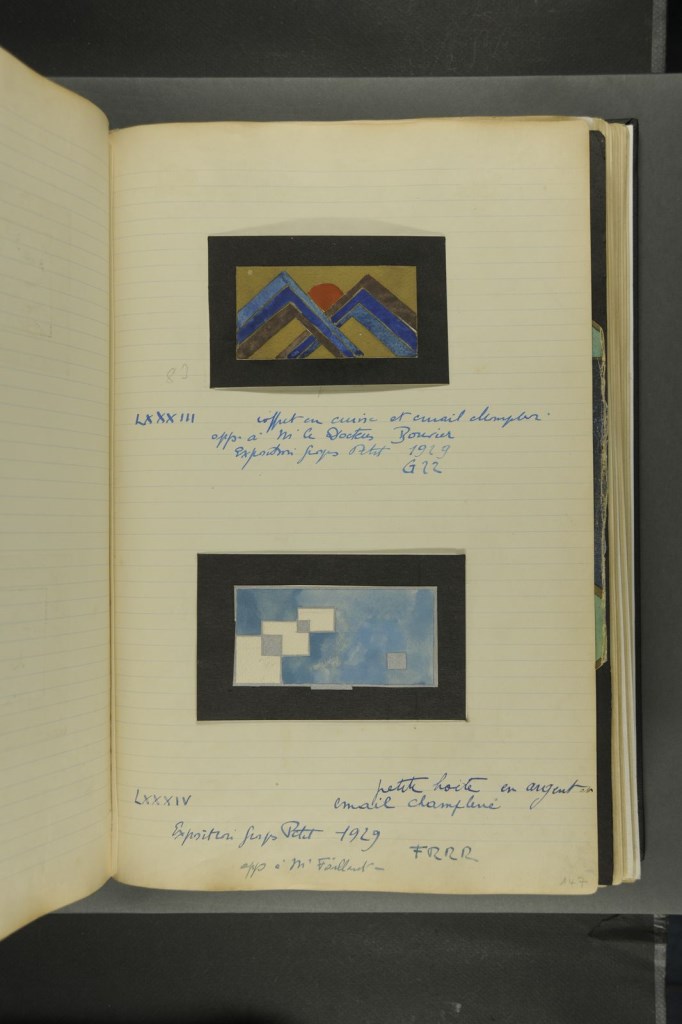 83
LXXXIII coffret en cuivre et émail champlevé.
app. à Mr le Docteur Bouvier
Exposition Georges Petit 1929
G22
LXXXIV petite boite en argent
email champlevé
Exposition Georges Petit 1929
FRRR
app à Mr